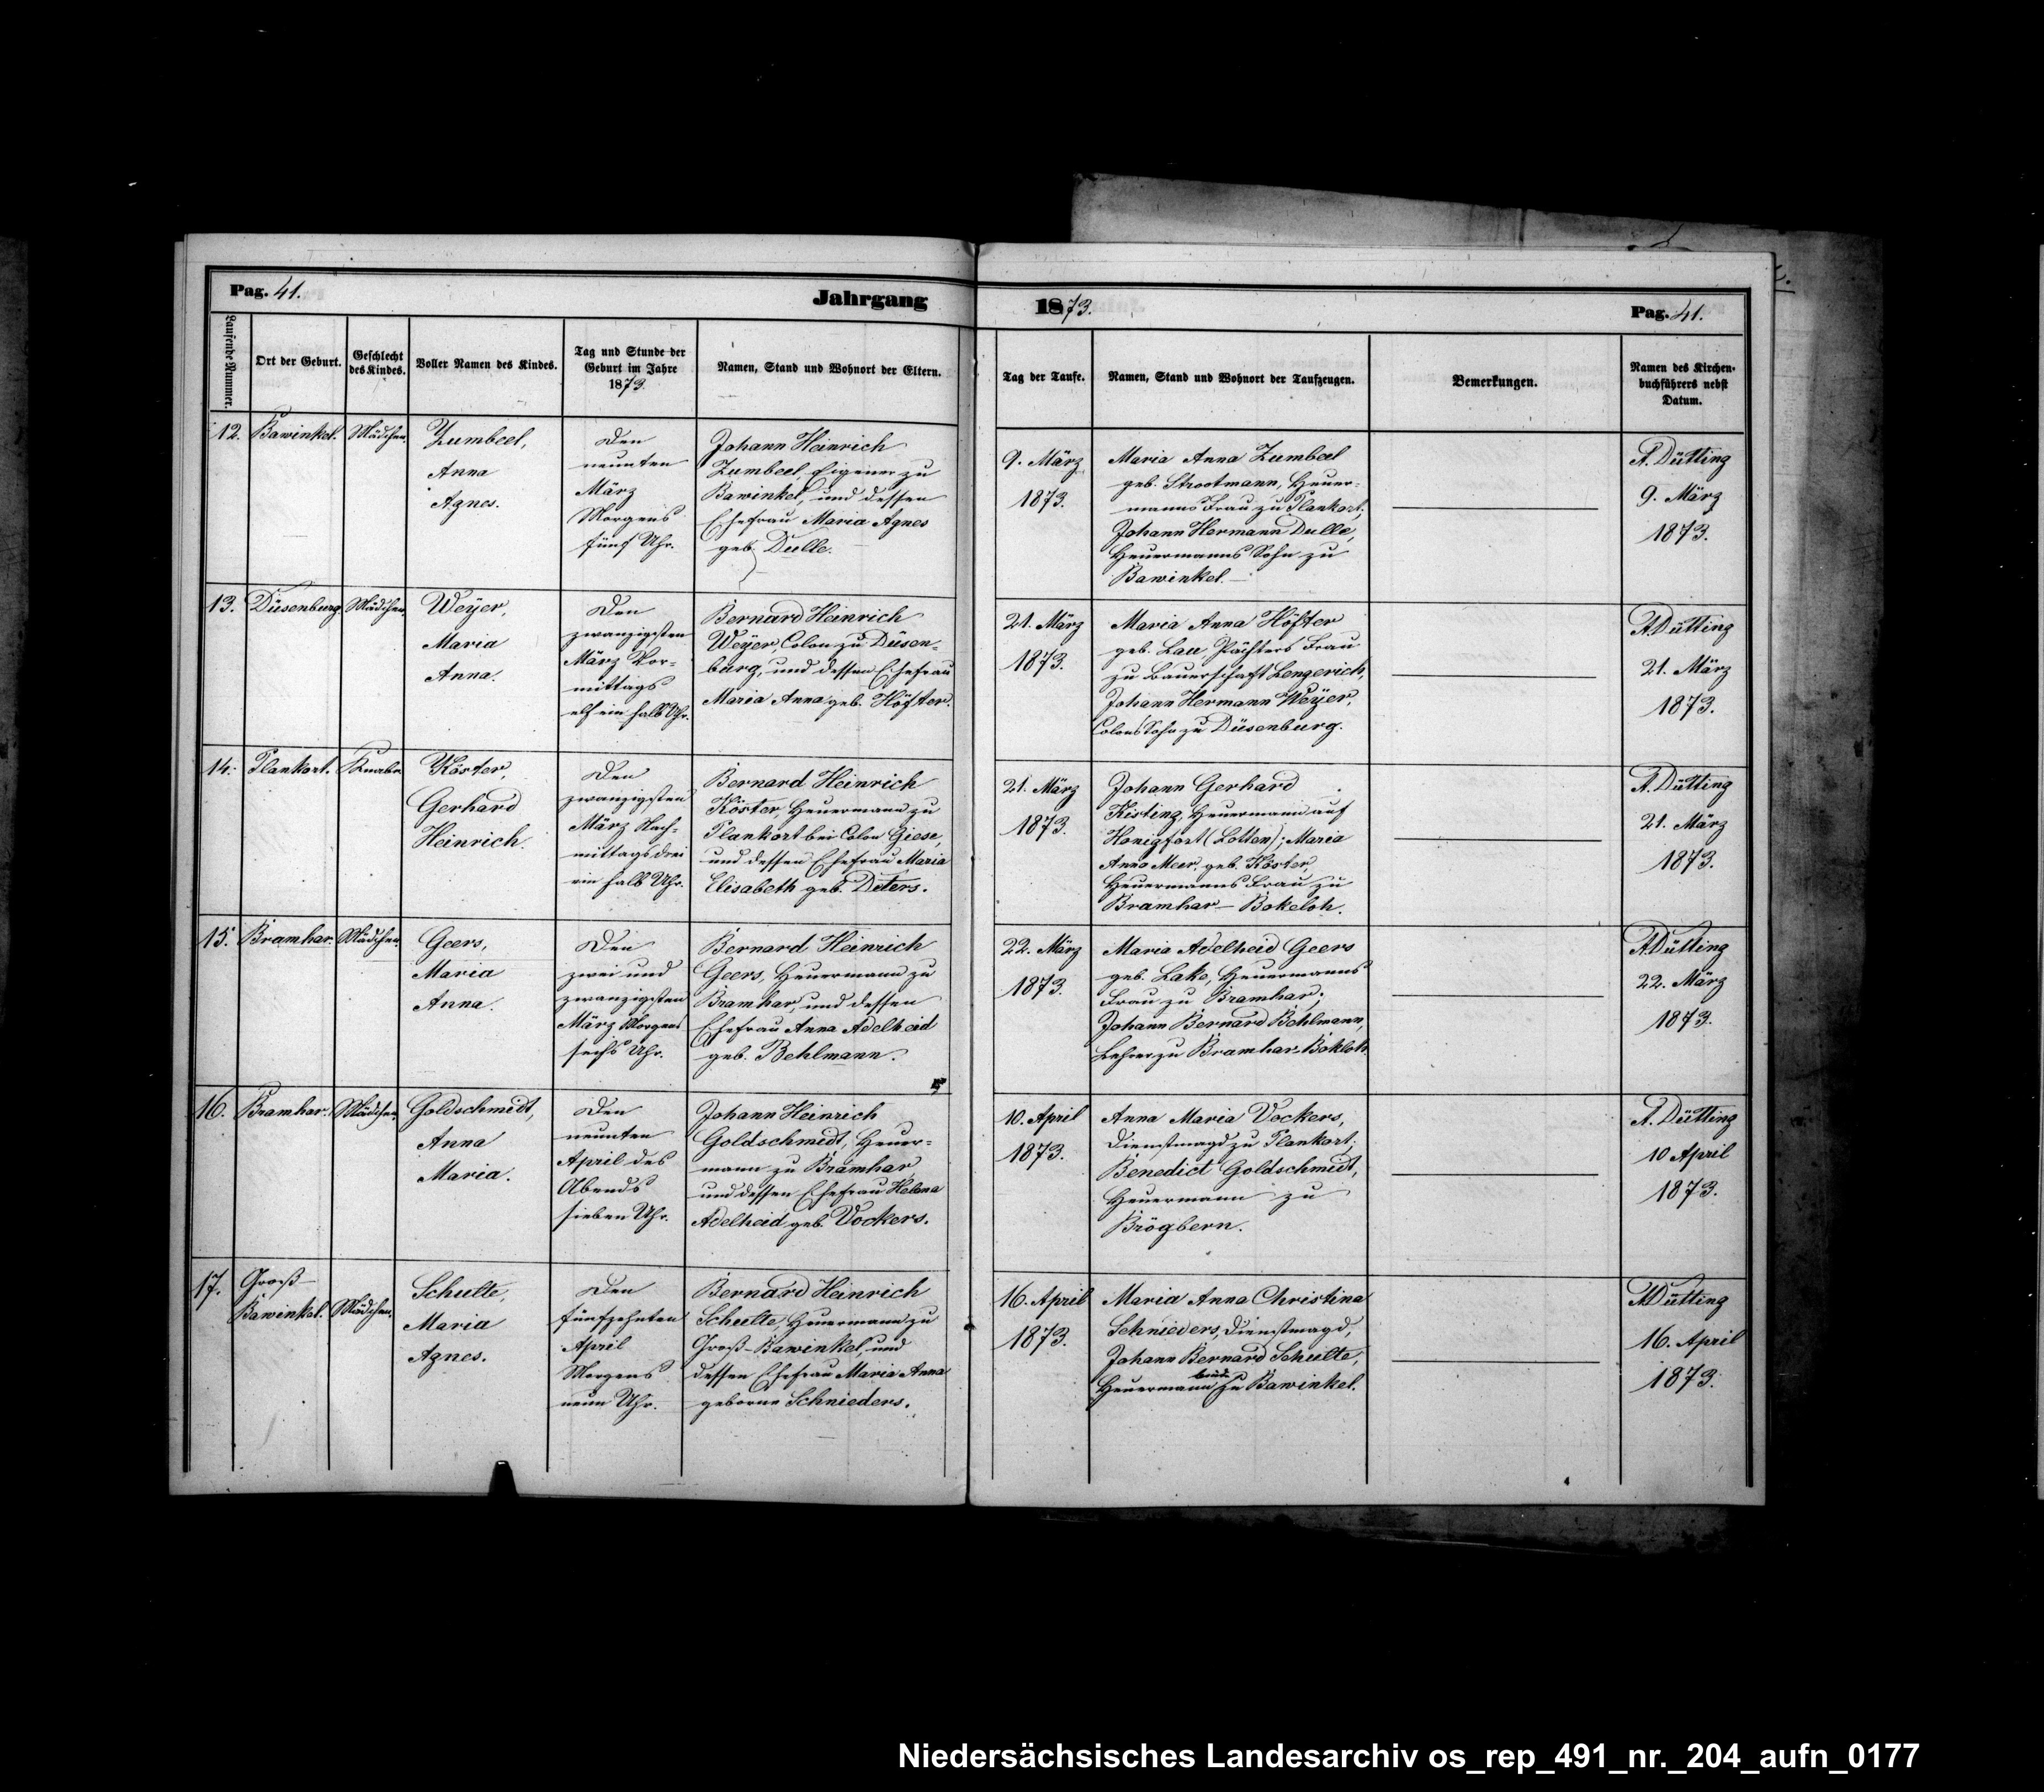 Pag. 41.
Jahrgang
1873.
Pag. 41.
Laufende Nummer.
Ort der Geburt.
Geschlecht
des Kindes.
Voller Namen des Kindes.
Tag und Stunde der
Geburt im Jahre
1873.
Namen, Stand und Wohnort der Eltern.
Tag der Taufe.
Namen, Stand und Wohnort der Taufzeugen.
Bemerkungen.
Namen des Kirchen-
buchführers nebst
Datum.
12.
Bawinkel.
Mädchen.
Zumbeel,
Anna
Agnes.
Den
neunten
März
Morgens
fünf Uhr.
Johann Heinrich
Zumbeel, Eigener zu
Bawinkel, und dessen
Ehefrau Maria Agnes
geb. Dulle.
9. März
1873.
Maria Anna Zumbeel
geb. Strootmann, Heuer-
manns Frau zu Plankort;
Johann Hermann Dulle,
Heuermanns Sohn zu
Bawinkel.
A. Dütting
9. März
1873.
13.
Düsenburg.
Mädchen.
Weÿer,
Maria
Anna.
Den
zwanzigsten
März Vor-
mittags
elf ein halb Uhr.
Bernard Heinrich
Weÿer, Colon zu Düsen-
burg, und dessen Ehefrau
Maria Anna geb. Höfter.
21. März
1873.
Maria Anna Höfter
geb. Lau, Pächters Frau
zu Bauerschaft Lengerich,
Johann Hermann Weÿer,
Colons Sohn zu Düsenburg.
A. Dütting
21. März
1873.
14.
Plankort.
Knabe
Köster,
Gerhard
Heinrich.
Den
zwanzigsten
März Nach-
mittags drei
ein halb Uhr.
Bernard Heinrich
Köster, Heuermann zu
Plankort bei Colon Giese,
und dessen Ehefrau Maria
Elisabeth geb. Deters.
21. März
1873.
Johann Gerhard
Kisting, Heuermann auf
Honigfort (Lotten); Maria
Anna Meer, geb. Köster,
Heuermanns Frau zu
Bramhar - Bokeloh.
A. Dütting
21. März
1873.
15.
Bramhar.
Mädchen.
Geers,
Maria
Anna.
Den
zwei und
zwanzigsten
März Morgens
sechs Uhr.
Bernard Heinrich
Geers, Heuermann zu
Bramhar, und dessen
Ehefrau Anna Adelheid
geb. Behlmann.
22. März
1873.
Maria Adelheid Geers
geb. Lake, Heuermanns
Frau zu Bramhar;
Johann Bernard Behlmann,
Lehrer zu Bramhar-Bokloh.
A. Dütting
22. März
1873.
16.
Bramhar.
Mädchen.
Goldschmidt,
Anna
Maria.
Den
neunten
April des
Abends
sieben Uhr.
Johann Heinrich
Goldschmidt, Heuer-
mann zu Bramhar
und dessen Ehefrau Helena
Adelheid geb. Vockers.
10. April
1873.
Anna Maria Vockers,
Dienstmagd zu Plankort;
Benedict Goldschmidt,
Heuermann zu
Brögbern.
A. Dütting
10 April
1873.
17.
Groß-
Bawinkel.
Mädchen.
Schulte,
Maria
Agnes.
Den
fünfzehnten
April
Morgens
neun Uhr.
Bernard Heinrich
Schulte, Heuermann zu
Groß-Bawinkel, und
dessen Ehefrau Maria Anna
geborne Schnieders.
16. April
1873.
Maria Anna Christina
Schnieders, Dienstmagd,
Johann Bernard Schulte,
beide
Heuermann zu Bawinkel.
A. Dütting
16. April
1873.
Niedersächsisches Landesarchiv os_rep_491_nr._204_aufn_0177